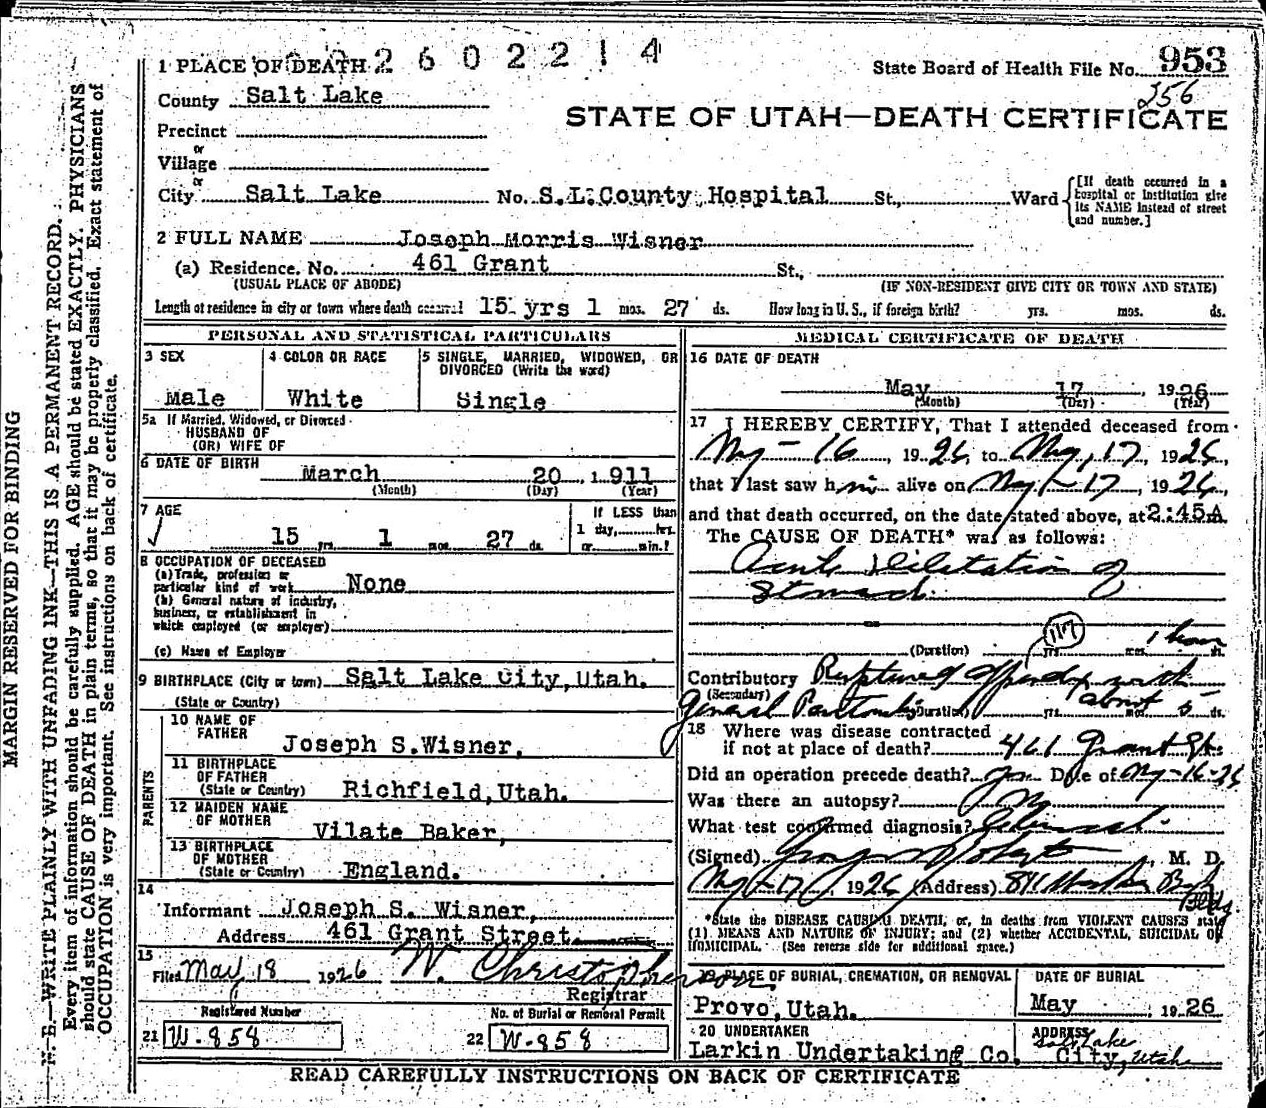 1 PLACE OF DEATH 2 6 0 2 2 1 4
State Board of Health File No. 953
256
County Salt Lake
STATE OF UTAH—DEATH CERTIFICATE
Precinct
or
Village
or
City Salt Lake No. S.L.County Hospital St., Ward
[If death occurred in a
hospital or institution give
its NAME instead of street
and number.]
2 FULL NAME Joseph Morris Wisner
(a) Residence. No. 461 Grant St.,
(USUAL PLACE OF ABODE) (IF NON-RESIDENT GIVE CITY OR TOWN AND STATE)
Length of residence in city or town where death occurred 15 yrs 1 mos. 27 ds. How long in U. S., if foreign birth? yrs. mos. ds.
PERSONAL AND STATISTICAL PARTICULARS
3 SEX
Male
4 COLOR OR RACE
White
5 SINGLE, MARRIED, WIDOWED, OR
DIVORCED (Write the word)
Single
5a If Married, Widowed, or Divorced
HUSBAND OF
(OR) WIFE OF
6 DATE OF BIRTH
March 20, 1911
(Month) (Day) (Year)
7 AGE
15 yrs. 1 mos. 27 ds.
If LESS than
1 day, hrs.
or min.?
8 OCCUPATION OF DECEASED
(a) Trade, profession or
particular kind of work None
(b) General nature of industry,
business, or establishment in
which employed (or employer)
(c) Name of Employer
9 BIRTHPLACE (City or town) Salt Lake City, Utah.
(State or Country)
PARENTS
10 NAME OF
FATHER
Joseph S.Wisner,
11 BIRTHPLACE
OF FATHER
(State or Country) Richfield,Utah.
12 MAIDEN NAME
OF MOTHER
Vilate Baker,
13 BIRTHPLACE
OF MOTHER
(State or Country) England.
14
Informant Joseph S. Wisner,
Address 461 Grant Street
15
Filed May 18 1926 W. Christopherson.
Registrar
Registered Number
21 W-858
No. of Burial or Removal Permit
22 W-858
MEDICAL CERTIFICATE OF DEATH
16 DATE OF DEATH
May 17 1926
(Month) (Day) (Year)
17 I HEREBY CERTIFY, That I attended deceased from
May-16, 1926, to May, 17, 1926,
that I last saw him alive on May-17, 1926,
and that death occurred, on the date stated above, at 2:45A m.
The CAUSE OF DEATH* was as follows:
Acute Dilatation of
Stomach.
117 1 hour
(Duration) yrs. mos. ds.
Contributory Ruptured Appendix with
(Secondary) about 5
General Peritonitis (Duration) yrs. mos. ds.
18 Where was disease contracted
if not at place of death? 461 Grant St.
Did an operation precede death? Yes Date of May-16-26
Was there an autopsy? No
What test confirmed diagnosis? Clinical.
(Signed) M. D.
May-17, 1926 (Address) Bldg.
*State the DISEASE CAUSING DEATH, or, in deaths from VIOLENT CAUSES state
(1) MEANS AND NATURE OF INJURY; and (2) whether ACCIDENTAL, SUICIDAL OR
HOMICIDAL. (See reverse side for additional space.)
19 PLACE OF BURIAL, CREMATION, OR REMOVAL
Provo,Utah.
DATE OF BURIAL
May , 1926
20 UNDERTAKER
Larkin Undertaking Co.
ADDRESS
Salt Lake
City, Utah
READ CAREFULLY INSTRUCTIONS ON BACK OF CERTIFICATE
MARGIN RESERVED FOR BINDING
N. B.—WRITE PLAINLY WITH UNFADING INK—THIS IS A PERMANENT RECORD.
Every item of information should be carefully supplied. AGE should be stated EXACTLY. PHYSICIANS
should state CAUSE OF DEATH in plain terms, so that it may be properly classified. Exact statement of
OCCUPATION is very important. See instructions on back of certificate.